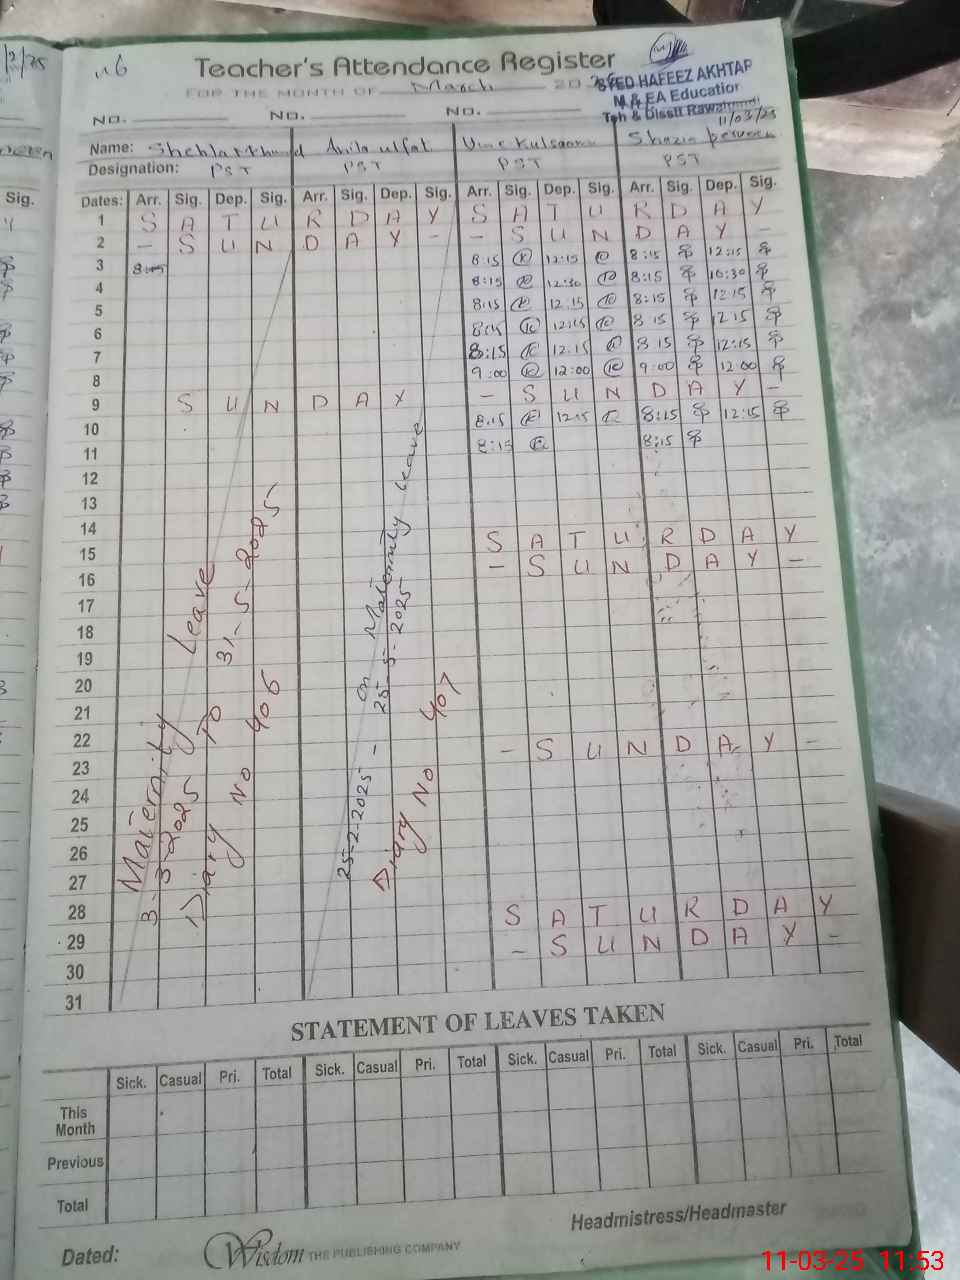 Teacher's Attendance Register
FOR THE MONTH OF March 20
SYED HAFEEZ AKHTAR
M & EA Educatior
Teh & Disstt Rawalpindi
11/03/25
NO. NO. NO.
Name: Anila ulfat Shazia perveen
Designation: PST PST PST PST
Dates: Arr. Sig. Dep. Sig. Arr. Sig. Dep. Sig. Arr. Sig. Dep. Sig. Arr. Sig. Dep. Sig.
1 S A T U R D A Y S A T U R D A Y
2 - S U N D A Y - - S U N D A Y -
3 8:15 8:15 12:15 8:15 12:15
4 8:15 12:30 8:15 10:30
5 8:15 12:15 8:15 12:15
6 8:15 12:15 8:15 12:15
7 8:15 12:15 8:15 12:15
8 9:00 12:00 9:00 12:00
9 S U N D A Y - S U N D A Y -
10 8:15 12:15 8:15 12:15
11 8:15 8:15
12
13
14
15 S A T U R D A Y
16 - S U N D A Y -
17
18
19
20
21
22
23 - S U N D A Y -
24
25
26
27
28
29 S A T U R D A Y
30 - S U N D A Y -
31
Maternity Leave
3-3-2025 To 31-5-2025
Diary No 406
on Maternity Leave
25-2-2025 - 25-5-2025
Diary No 407
STATEMENT OF LEAVES TAKEN
Sick. Casual Pri. Total Sick. Casual Pri. Total Sick. Casual Pri. Total Sick. Casual Pri. Total
This Month
Previous
Total
Headmistress/Headmaster
Dated:
Wisdom THE PUBLISHING COMPANY
11-03-25 11:53